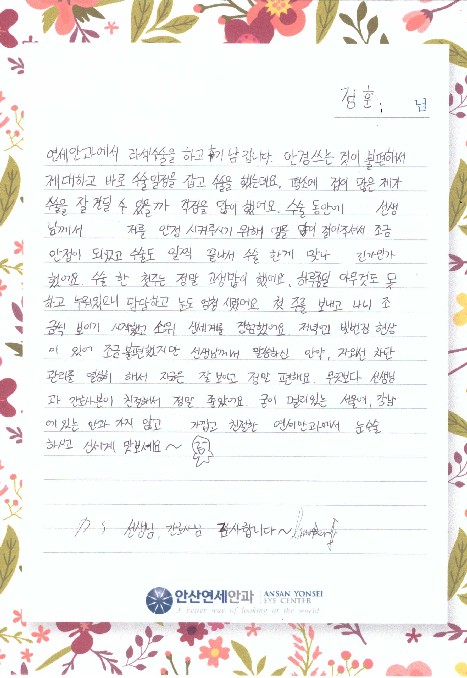 정훈 님
연세안과에서 라식수술을 하고 후기 남깁니다. 안경쓰는 것이 불편해서
제대하고 바로 수술일정을 잡고 수술을 했는데요. 평소에 겁이 많은 제가
수술을 잘 견딜 수 있을까 걱정을 많이 했어요. 수술 동안에 선생
님께서 저를 안정 시켜주시기 위해 말을 많이 걸어주셔서 조금
안정이 되었고 수술도 일찍 끝나서 수술 한게 맞나 긴가민가
했어요. 수술 한 첫주는 정말 고생많이 했어요. 하루종일 아무것도 못
하고 누워있으니 답답하고 눈도 엄청 시렸어요. 첫 주를 보내고 나니 조
금씩 보이기 시작했고 소위 신세계를 경험했어요. 저녁에 빛번짐 현상
이 있어 조금 불편했지만 선생님께서 말씀하신 안약, 자외선 차단
관리를 열심히 해서 지금은 잘 보이고 정말 편해요. 무엇보다 선생님
과 간호사분이 친절해서 정말 좋았어요. 굳이 멀리있는 서울에, 강남
에 있는 안과 가지 않고 가깝고 친절한 연세안과에서 눈수술
하시고 신세계 맛보세요~
선생님, 간호사님 감사합니다~
안산연세안과 ANSAN YONSEI EYE CENTER
A better way of looking at the world